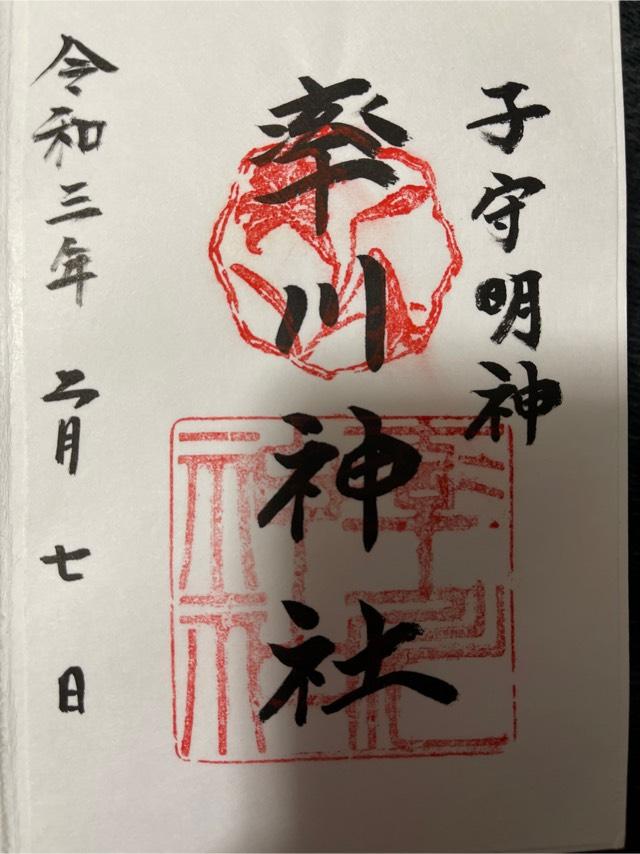 子守明神
率川神社
令和三年 二月 七 日